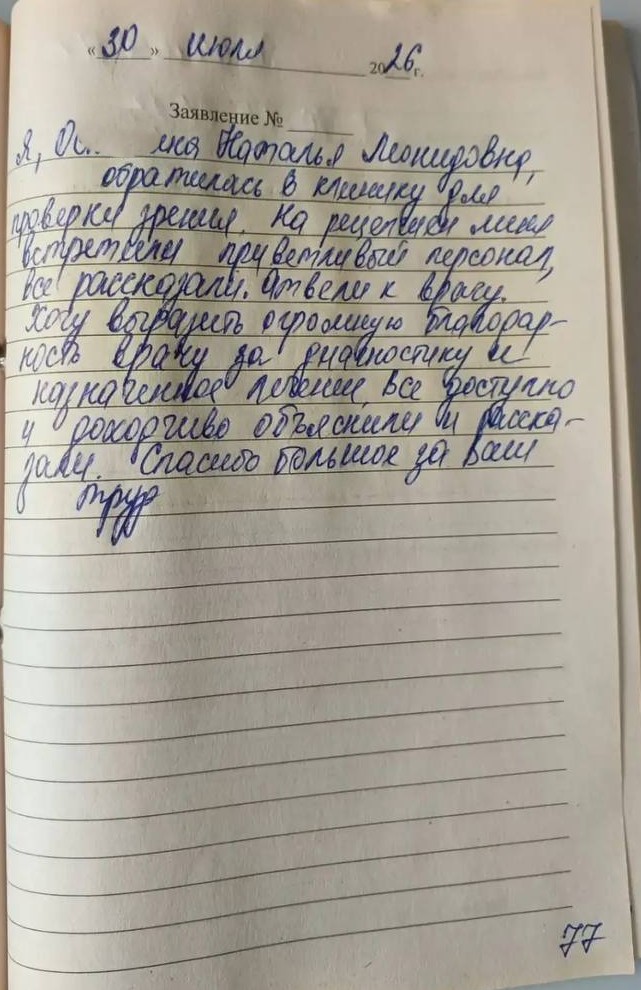 «30» июля 2026 г.
Заявление №
Я, Наталья Леонидовна,
обратилась в клинику для
проверки зрения. На рецепшен меня
встретили приветливый персонал,
все рассказали. Отвели к врачу.
Хочу выразить огромную благодар-
ность врачу за диагностику и
назначенное лечение. Все доступно
и доходчиво объяснили и расска-
зали. Спасибо большое за Ваш
труд
77